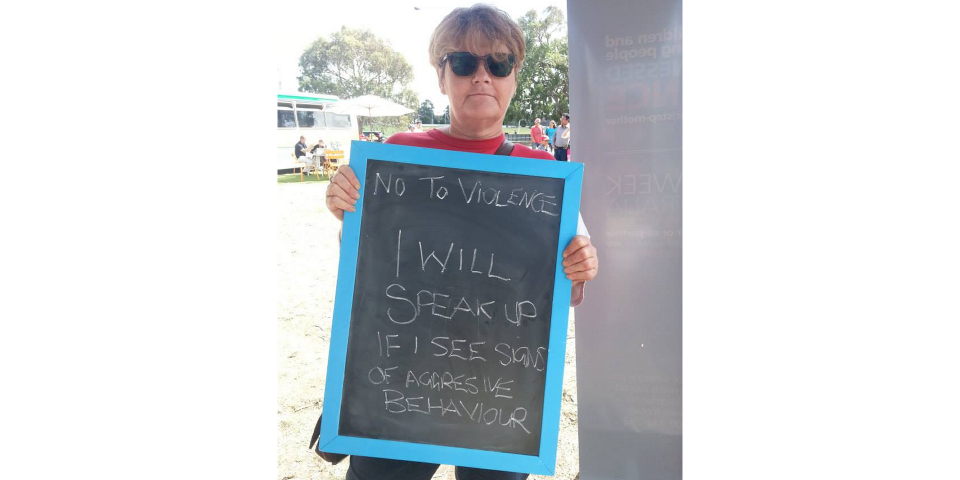 NO TO VIOLENCE
I WILL
SPEAK UP
IF I SEE SIGNS
OF AGGRESIVE
BEHAVIOUR
ildren and
ng people
step-mother
WEEK